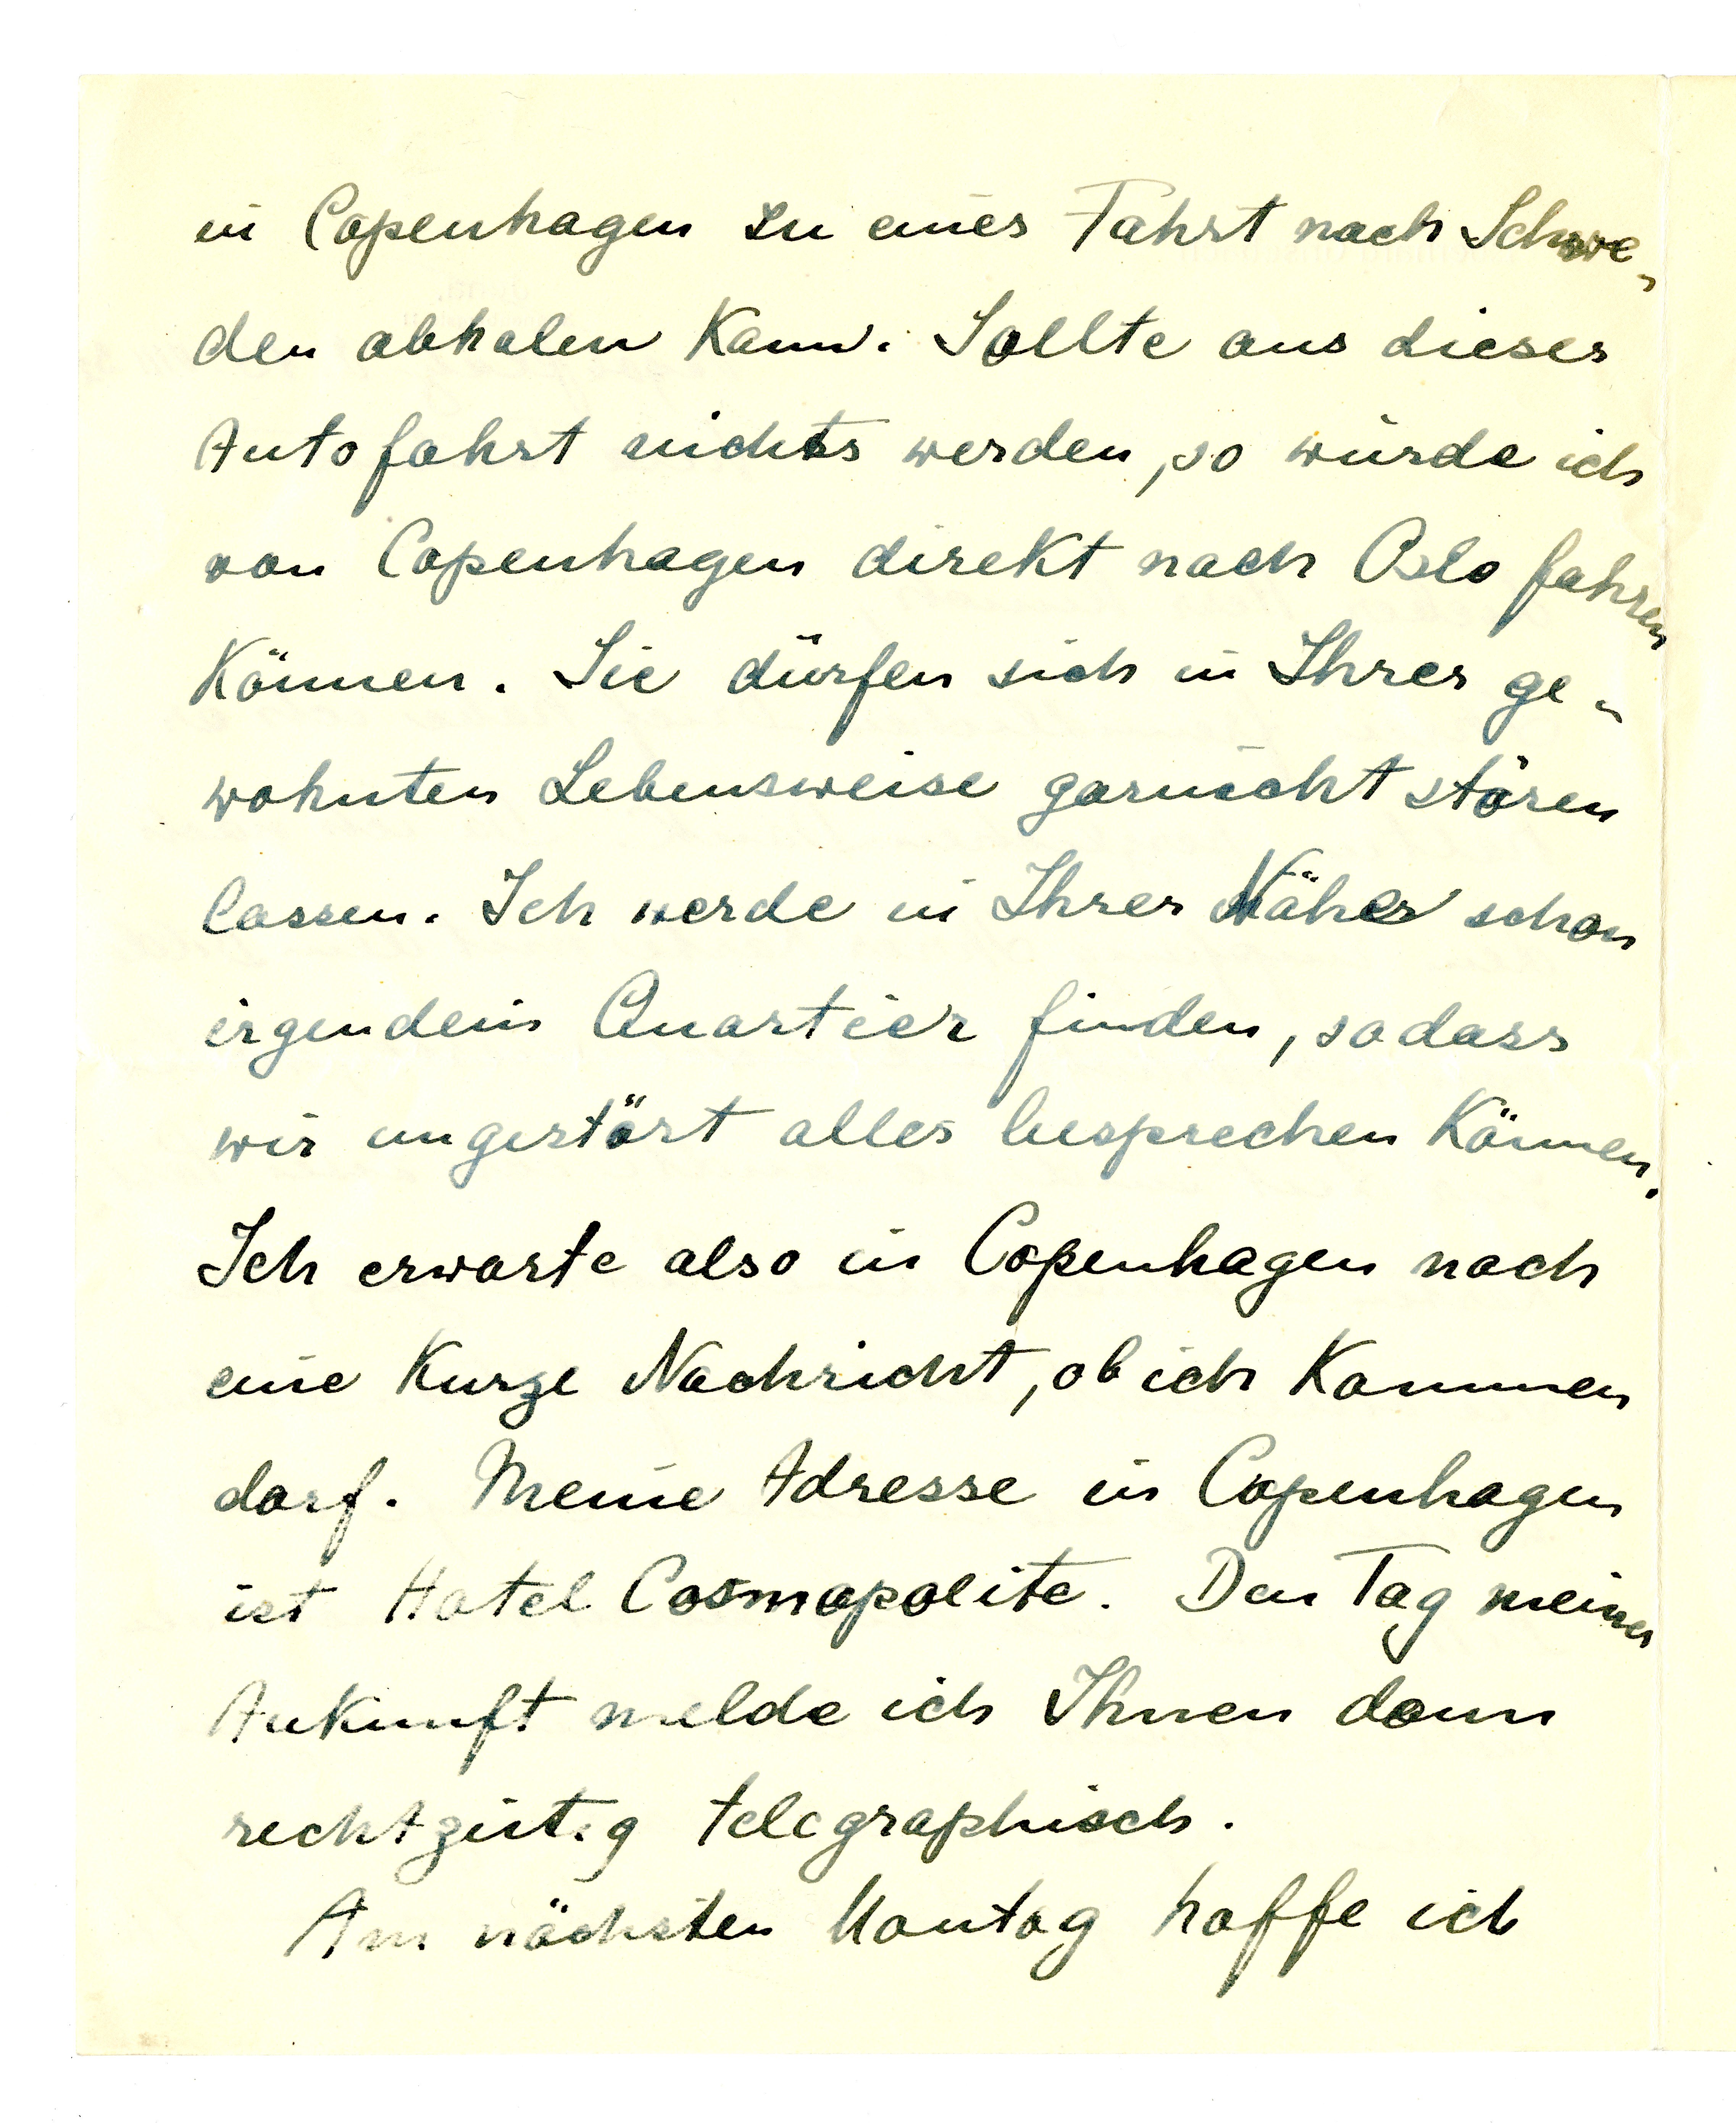 in Copenhagen zu einer Fahrt nach Schwe-
den abholen kann. Sollte aus dieser
Autofahrt nichts werden, so würde ich
von Copenhagen direkt nach Oslo fahren
können. Sie dürfen sich in Ihrer ge-
wohnten Lebensweise garnicht stören
lassen. Ich werde in Ihrer Näher schon
irgendein Quartier finden, sodass
wir ungestört alles besprechen können.
Ich erwarte also in Copenhagen noch
eine kurze Nachricht, ob ich kommen
darf. Meine Adresse in Copenhagen
ist Hotel Cosmopolite. Den Tag meiner
Ankunft melde ich Ihnen dann
rechtzeitig telegraphisch.
Am nächsten Montag hoffe ich